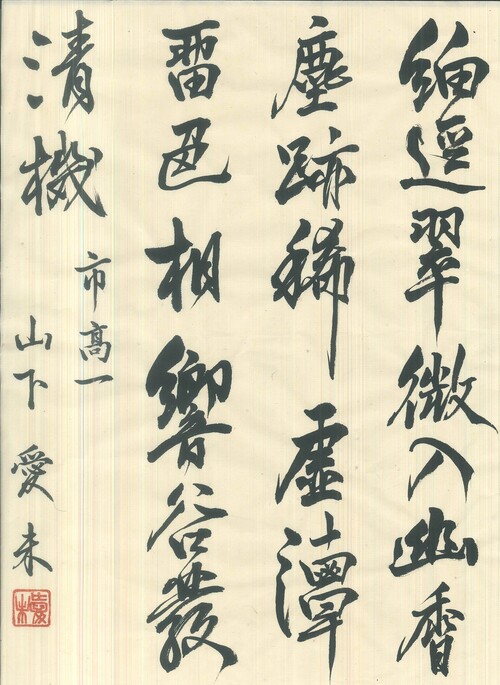 細逕翠微入幽香
塵跡稀虚潭
留邑相響谷發
清機
市高一
山下愛未